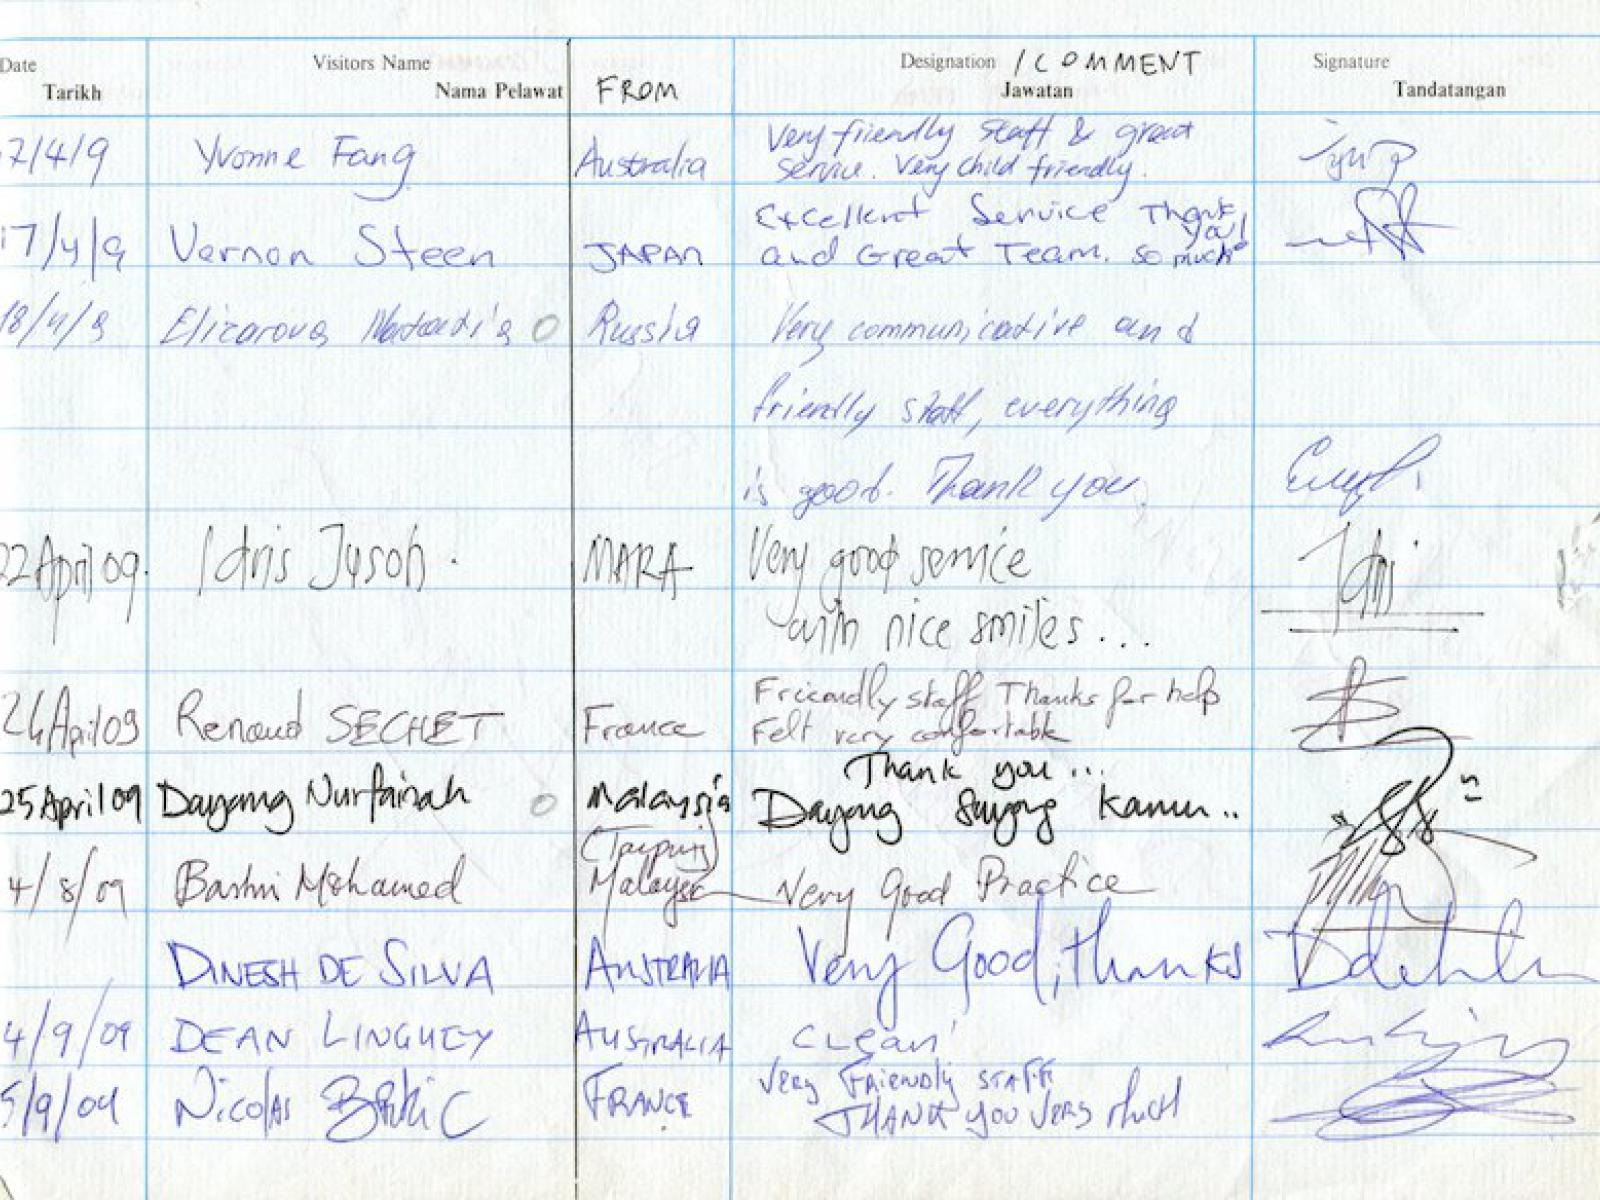 Date Visitors Name Designation / COMMENT Signature
Tarikh Nama Pelawat FROM Jawatan Tandatangan
7/4/9 Yvonne Fang Australia Very friendly staff & great
service. Very child friendly.
17/4/9 Vernon Steen JAPAN Excellent Service Thank you!
and Great Team. so much
18/4/9 Elizarova Russia Very communicative and
friendly staff, everything
is good. Thank you
22 April 09. Idris Jusoh. MARA Very good service
with nice smiles...
24 April 09 Renaud SECHET France Frieandly staff Thanks for help
Felt very comfortable
Thank you...
25 April 09 Dayang Nurfaizah Malaysia Dayang Sayang Kamu..
(Taiping)
4/8/09 Bashri Mohamed Malaysia Very Good Practice
DINESH DE SILVA AUSTRALIA Very Good, thanks
4/9/09 DEAN AUSTRALIA Clean
5/9/09 Nicolas FRANCE VERY FRIENDLY STAFF
THANK YOU VERY Much